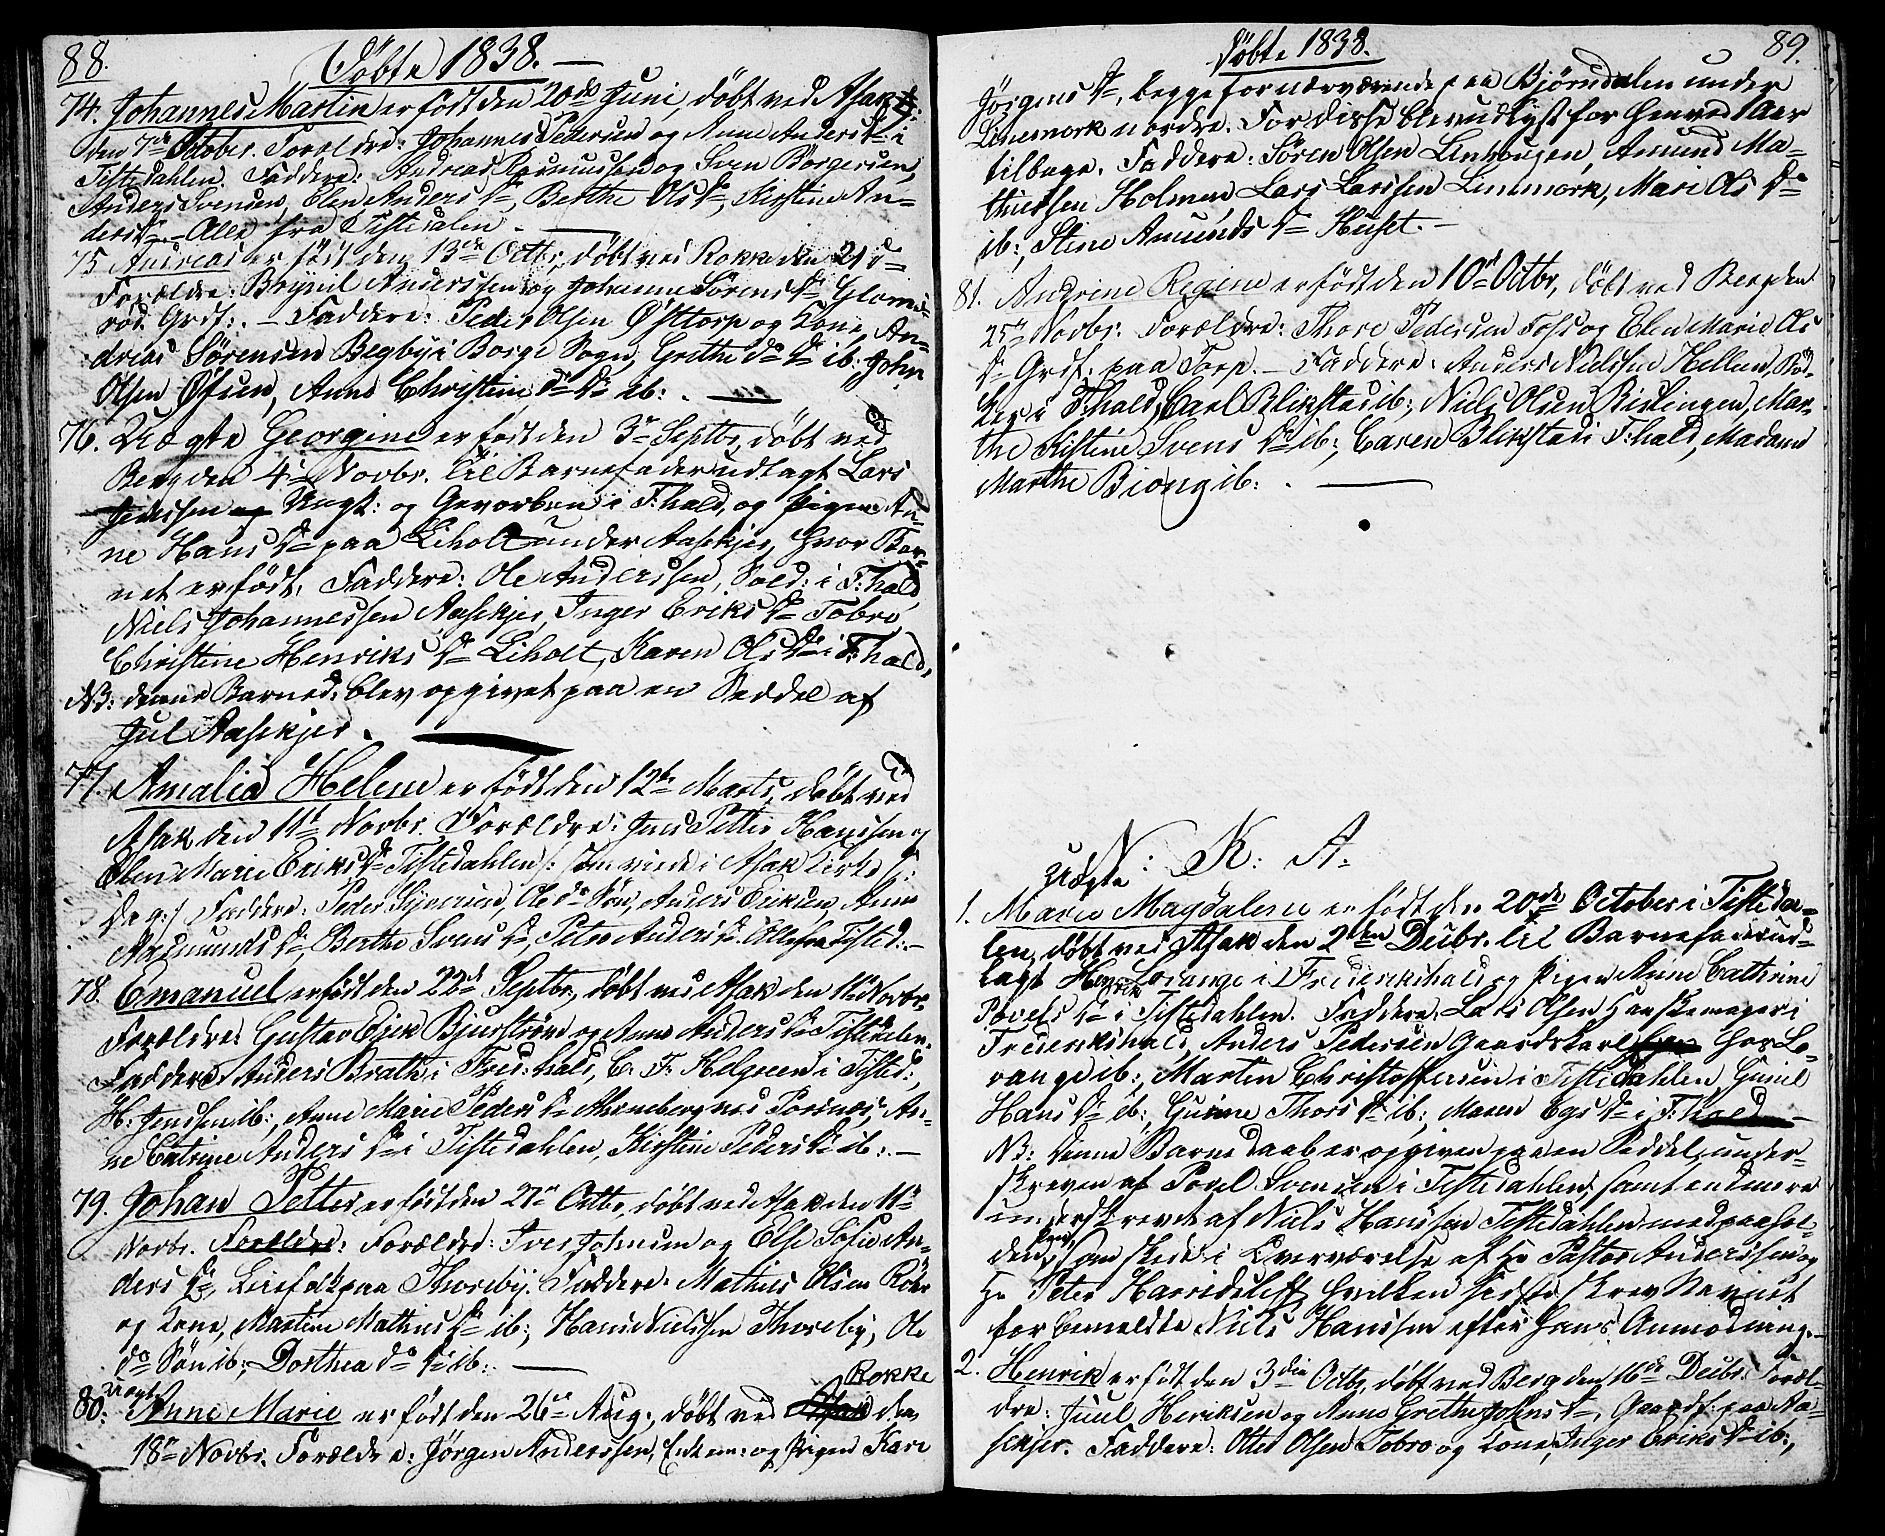 88.
Döbte 1838. —
74. Johannes Martin er födt den 20de Juni, döbt ved Asak
den 7de October. Forældre: Johannes Pedersen og Anne Anders Dr i
Tistedahlen. Faddere: Andreas Rasmussen og Sven Börgersen,
Anders Svensen, Elen Anders Dr, Berthe Ols Dr, Kirstine An-
ders Dr – Alle fra Tistedalen. —
75 Andreas er födt den 13de Octbr, döbt ved Rokke den 21de
Forældre: Brynil Anderssen og Johanne Sörens Dr Glomms-
röd Grdf: . – Faddere: Peder Olsen Östtorp og Kone, An-
dreas Sörensen Begby i Borge Sogn, Grethe do Dr ib: John
Olsen Ösien, Anne Christine do Dr ib: . —
76. Uægte Georgine er födt den 3de Septbr, döbt ved
Berg den 4de Novbr. til Barnefader udlagt Lars
Jenssen og Ungk: og Gevorben i F:hald, og Pigen An-
ne Hans Dr paa Liholt under Aasekjer, hvor Bar-
net er födt. Faddere: Ole Anderssen, Sold: i F:hald,
Niels Johannessen Aasekjer, Inger Eriks Dr Tobro,
Christine Henriks Dr Liholt, Karen Ols Dr i F:hald,
NB: denne Barned: blev opgivet paa en Seddel af
Jul Aasekjer. —
77. Amalia Helene er födt den 12te Marts, döbt ved
Asak den 11te Novbr. Forældre: Jens Petter Hanssen og
Elen Marie Eriks Dr Tistedahlen /: som viede i Asak Kirke s:
D: g:/ Faddere: Peder Syversen, Ole do Sön, Anders Eriksen, Anne
Aasmunds Dr, Berthe Svens Dr, Petra Anders Dr. Alle fra Tisted: –
78. Emanuel er födt den 22de Septbr, döbt ved Asak den 11te Novbr.
Forældre: Gustav Erik Bjurström og Anne Anders Dr Tistedalen.
Faddere: Anders Brath i Fred:hald, C. F. Helgreen i Tisted:,
H: Jenssen ib:, Anne Marie Peders Dr Skeneberg ved Porsnæs, An-
ne Catrine Anders Dr i Tistedahlen, Kirstine Peders Dr ib: –
79. Johan Petter er födt den 27de Octbr, döbt ved Asak den 11te
Novbr. Forældre: Forældre: Iver Johnsen og Else Sofie An-
ders Dr, Leiefolk paa Thoreby. Faddere: Mathias Olsen Röer
og Kone, Martine Mathias Dr ib:, Hans Nielssen Thoreby, Ole
do Sön ib:, Dorthea do Dr ib: . —
Rokke
Uægte
80. Anne Marie er födt den 26de Aug:, döbt ved Asak den
18de Novbr. Forældre: Jörgen Anderssen, Enkem: og Pigen Kari
Döbte 1838.
89.
Jörgens Dr, begge forn nærværende paa Björndalen under
Lennmork nordre. For disse blev udlyst for henved 1 Aar
tilbage. Faddere: Sören Olsen Linhougen, Amund Ma-
thiessen Holmen, Lars Larssen Linnmork, Mari Ols Dr
ib:, Stine Amunds Dr Huset. –
81. Andrine Regine er födt den 10de Octbr, döbt ved Berg den
25de Novbr. Forældre: Thore Pedersen Foss og Elen Marie Ols
Dr Grdf: paa Torp. – Faddere: Anders Nielssen Hellen, Bö-
ker i F:hald, Carl Blikstad ib:, Niels Olsen Bislingen, Mar-
the Kistine Svens Dr ib:, Caren Blikstad i F:hald, Madame
Marthe Biong ib: . —
N: K: A.
Uægte
1. Maren Magdalene er födt den 20de October i Tisteda-
len, döbt ved Asak den 2den Decbr. til Barnefader ud-
lagt Henrik Lorange i Frederikshald og Pigen Anne Cathrine
Povels Dr i Tistedahlen. Faddere: Lars Olsen Handskemager i
Frederikshald, Anders Pedersen Gaardskarl hos Lo-
range ib:, Martin Christoffersen i Tistedahlen, Gunild
Hans Dr ib:, Gunne Thors Dr ib:, Maren Egs Dr i F:hald —
NB: Denne Barnedaab er opgiven paa en Seddel, under-
skreven af Povel Svensen i Tistedahlen, samt endvidere
underskrevet af Niels Hanssen Tistedahlen med paahol-
den Pen, som skede i Overværelse af Hr Pastor Anderssen og
Hr Peter Harridsleff, hvilken sidste skrev Navnet
for bemeldte Niels Hanssen efter hans Anmodning. –
2. Henrik er födt den 3die Octbr, döbt ved Berg den 16de Decbr. Foræl-
dre: Juul Henriksen og Anne Grethe Johns Dr, Gaardf: paa Aa-
sekjer. Faddere: Otter Olsen Tobro og Kone, Inger Eriks Dr ib:,